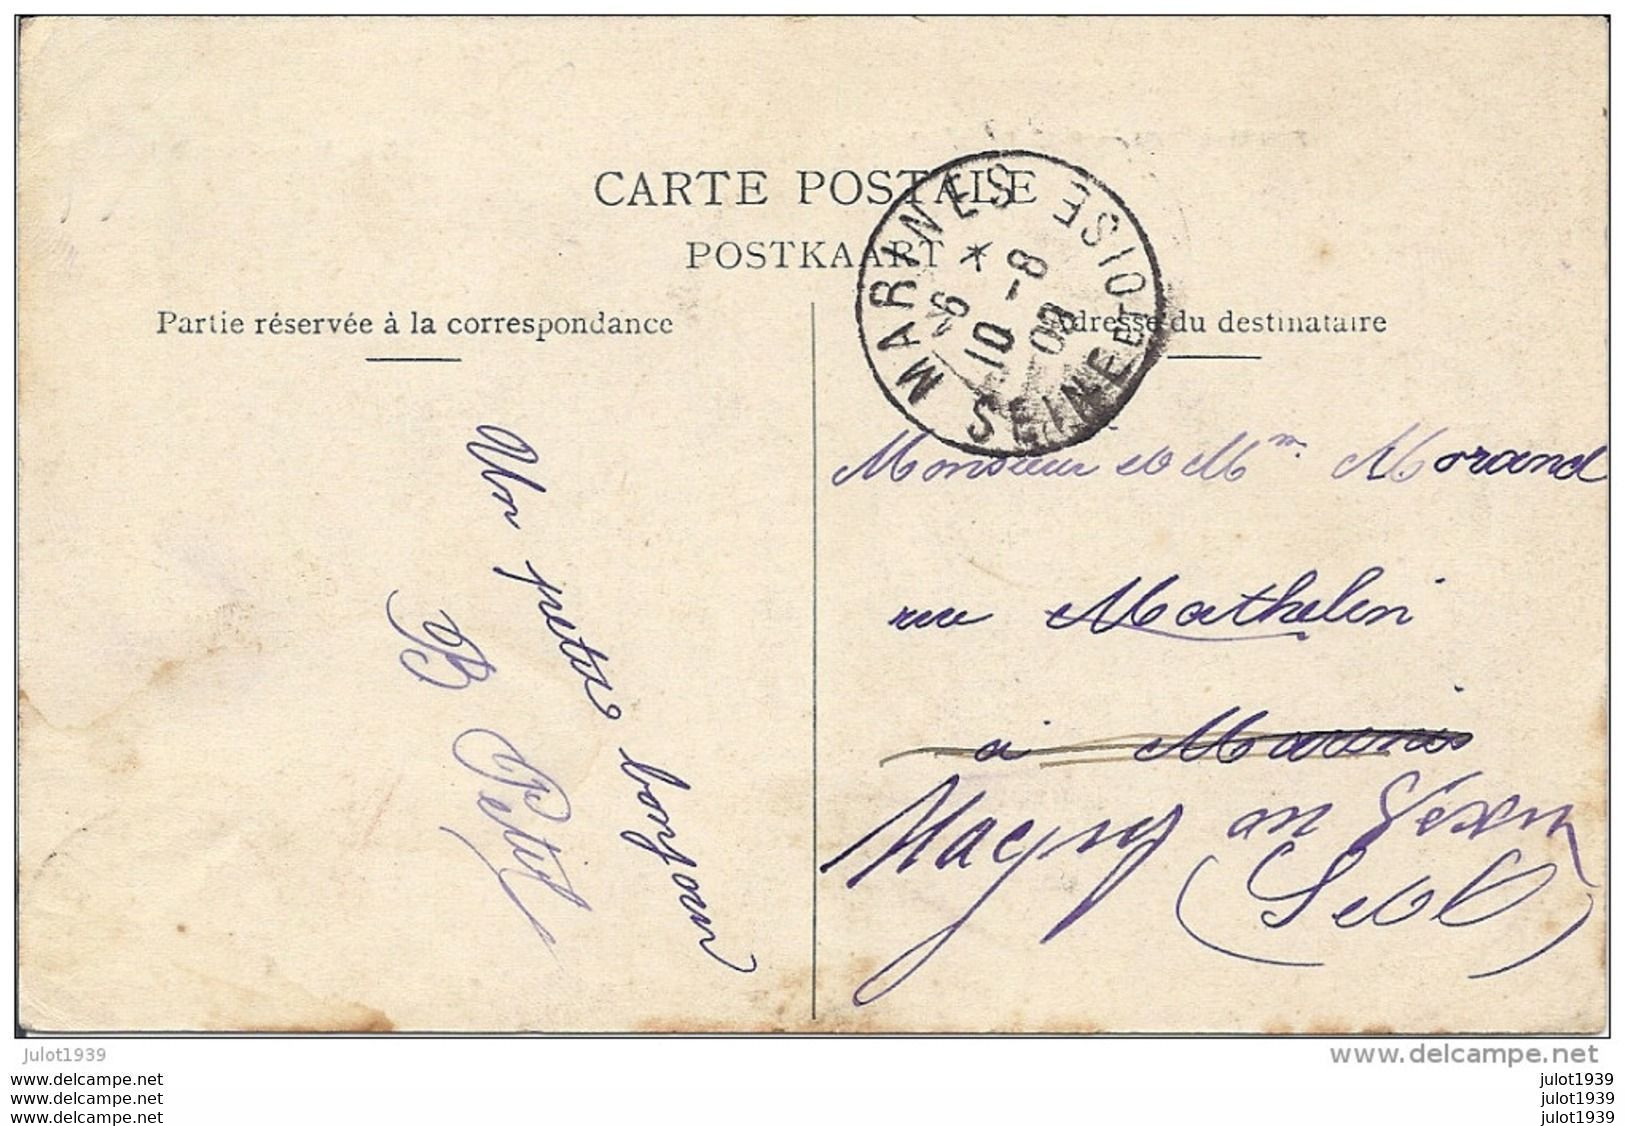 CARTE POSTALE
POSTKAART
MARINES SEINE ET OISE
*
10 -8
08
Partie réservée à la correspondance
Adresse du destinataire
Un petit bonjour
B Petit
Monsieur et Mme Morand
rue Mathelin
à Marines
Magny en Vexin
(S et O)
www.delcampe.net
julot1939
www.delcampe.net julot1939
www.delcampe.net julot1939
www.delcampe.net julot1939